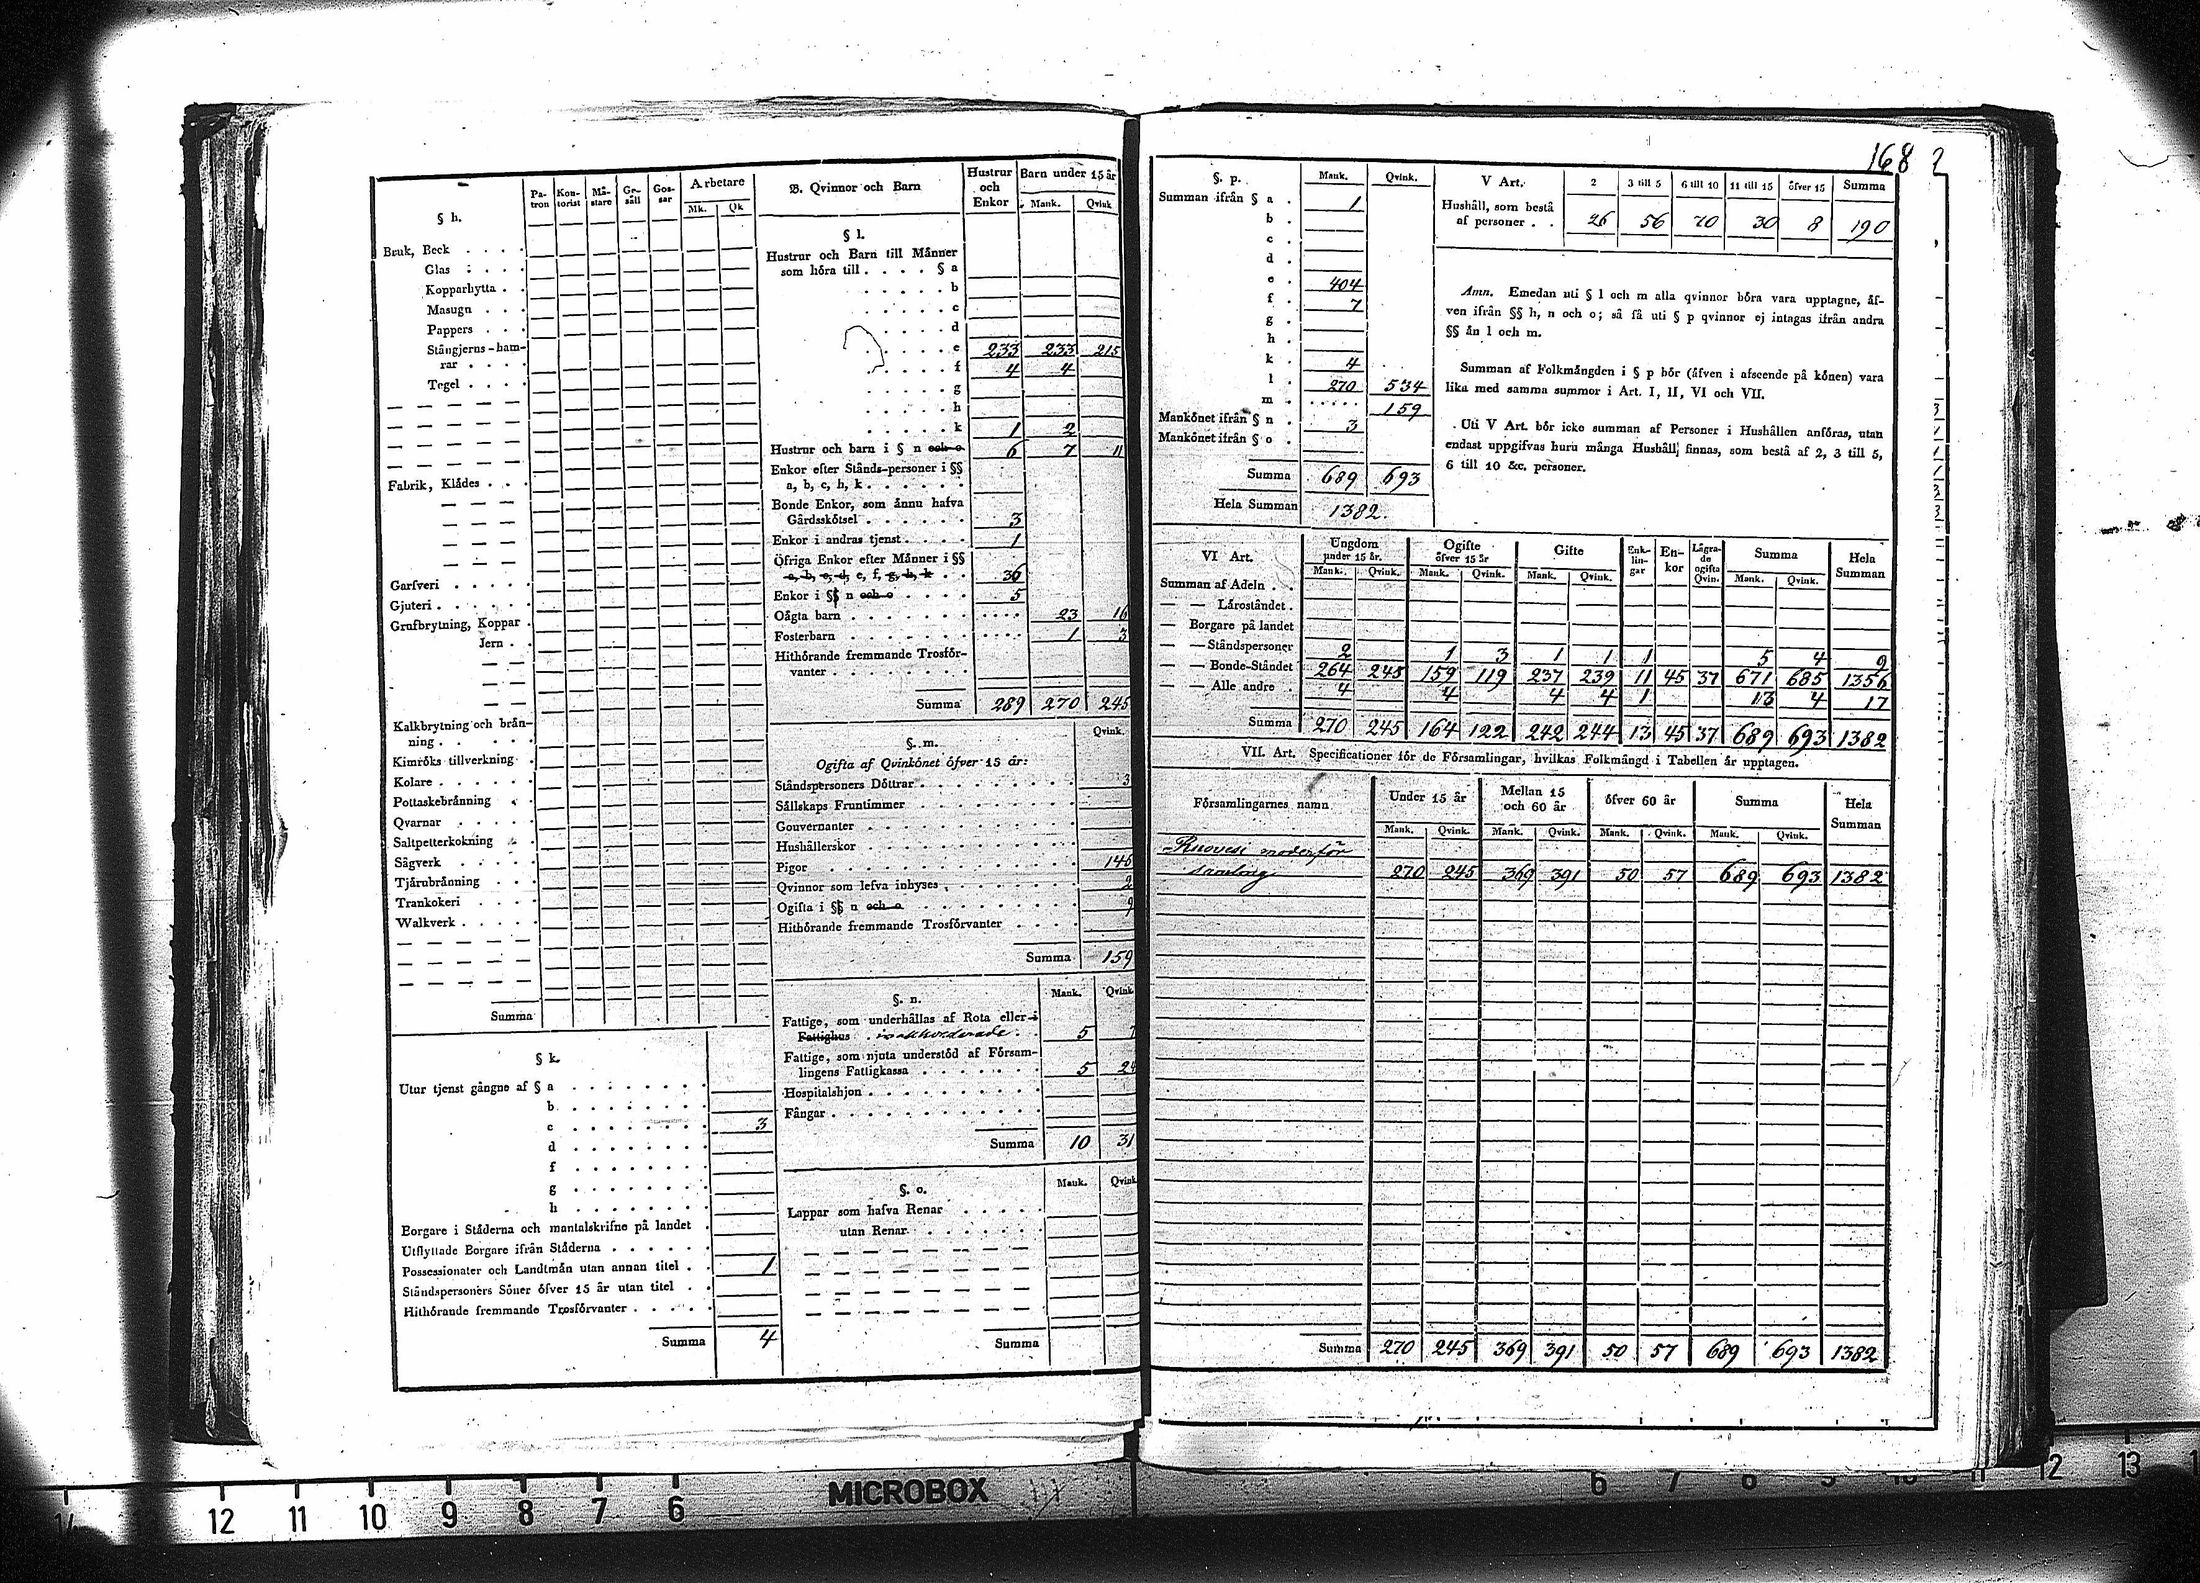 168
§ h.
Pa- tron
Kon- torist
Må- stare
Ge- säll
Gos- sar
Arbetare
Mk. Qk
Bruk, Beck
Glas
Kopparhytta
Masugn
Pappers
Stångjerns-ham-
rar
Tegel
Fabrik, Klådes
Garfveri
Gjuteri
Grufbrytning, Koppar
Jern
Kalkbrytning och brån-
ning
Kimröks tillverkning
Kolare
Pottaskebrånning
Qvarnar
Saltpetterkokning
Sågverk
Tjårnbrånning
Trankokeri
Walkverk
Summa
§ k.
Utur tjenst gångne af § a
b
c 3
d
f
g
h
Borgare i Ståderna och mantalskrifne på landet
Utflyttade Borgare ifrån Ståderna
Possessionater och Landtmån utan annan titel 1
Ståndspersoners Söner öfver 15 år utan titel
Hithörande fremmande Trosförvanter
Summa 4
B. Qvinnor och Barn
Hustrur och Enkor
Barn under 15 år
Mank. Qvink
§ l.
Hustrur och Barn till Månner
som höra till § a
b
c
d
e 233 233 215
f 4 4
g
h
k 1 2
Hustrur och barn i § n och o 6 7 11
Enkor efter Stånds-personer i §§
a, b, c, h, k
Bonde Enkor, som ånnu hafva
Gårdsskötsel 3
Enkor i andras tjenst 1
Öfriga Enkor efter Månner i §§
a, b, c, d, e, f, g, h, k 36
Enkor i §§ n och o 5
Oågta barn 23 16
Fosterbarn 1 3
Hithörande fremmande Trosför-
vanter
Summa 289 270 245
§. m. Qvink.
Ogifta af Qvinkönet öfver 15 år:
Ståndspersoners Döttrar 3
Sållskaps Fruntimmer
Gouvernanter
Hushållerskor
Pigor 145
Qvinnor som lefva inhyses 2
Ogifta i §§ n och o 9
Hithörande fremmande Trosförvanter
Summa 159
§. n. Mank. Qvink
Fattige, som underhållas af Rota eller i
Fattighus 5 7
Fattige, som njuta understöd af Försam-
lingens Fattigkassa 5 24
Hospitalshjon
Fångar
Summa 10 31
§. o. Mank. Qvink
Lappar som hafva Renar
utan Renar
Summa
§. p. Mank. Qvink.
Summan ifrån § a 1
b
c
d
e 404
f 7
g
h
k 4
l 270 534
m 159
Mankönet ifrån § n 3
Mankönet ifrån § o
Summa 689 693
Hela Summan 1382.
V Art. 2 3 till 5 6 till 10 11 till 15 öfver 15 Summa
Hushåll, som bestå
af personer 26 56 70 30 8 190
Anm. Emedan uti § l och m alla qvinnor böra vara upptagne, åf-
ven ifrån §§ h, n och o; så få uti § p qvinnor ej intagas ifrån andra
§§ ån l och m.
Summan af Folkmångden i § p bör (åfven i afseende på könen) vara
lika med samma summor i Art. I, II, VI och VII.
Uti V Art. bör icke summan af Personer i Hushållen anföras, utan
endast uppgifvas huru många Hushåll finnas, som bestå af 2, 3 till 5,
6 till 10 &c. personer.
VI Art.
Ungdom under 15 år.
Ogifte öfver 15 år
Gifte
Enk- lin- gar
En- kor
Lågra- de ogifta Qvin.
Summa
Hela Summan
Mank. Qvink. Mank. Qvink. Mank. Qvink. Mank. Qvink.
Summan af Adeln
— — Låroståndet
— Borgare på landet
— — Ståndspersoner 2 1 3 1 1 1 5 4 9
— — Bonde-Ståndet 264 245 159 119 237 239 11 45 37 671 685 1356
— — Alle andre 4 4 4 4 1 13 4 17
Summa 270 245 164 122 242 244 13 45 37 689 693 1382
VII. Art. Specificationer för de Församlingar, hvilkas Folkmångd i Tabellen år upptagen.
Församlingarnes namn
Under 15 år
Mellan 15 och 60 år
öfver 60 år
Summa
Hela Summan
Mank. Qvink. Mank. Qvink. Mank. Qvink. Mank. Qvink.
Ruovesi moderför
samling 270 245 369 391 50 57 689 693 1382
Summa 270 245 369 391 50 57 689 693 1382
MICROBOX
12 11 10 9 8 7 6
6 7 8 9 10 11 12 13